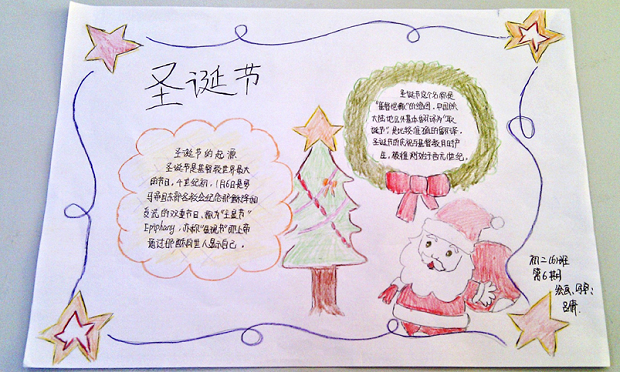 圣诞节
圣诞节的起源
圣诞节是基督教世界最大
的节日,4世纪初,1月6日是罗
马帝国东部各教会纪念耶稣降和
受洗的双重节日、称为"主显节"
Epiphany,亦称"显现节"即上帝
通过耶稣向世人显示自己。
圣诞节这个名称是
"基督弥撒"的缩写,中国
大陆地区外基本都译为"耶
诞节",是比较准确的翻译。
圣诞节庆祝与基督教同时产
生,被推测始于西元1世纪。
初二(6)班
第6期